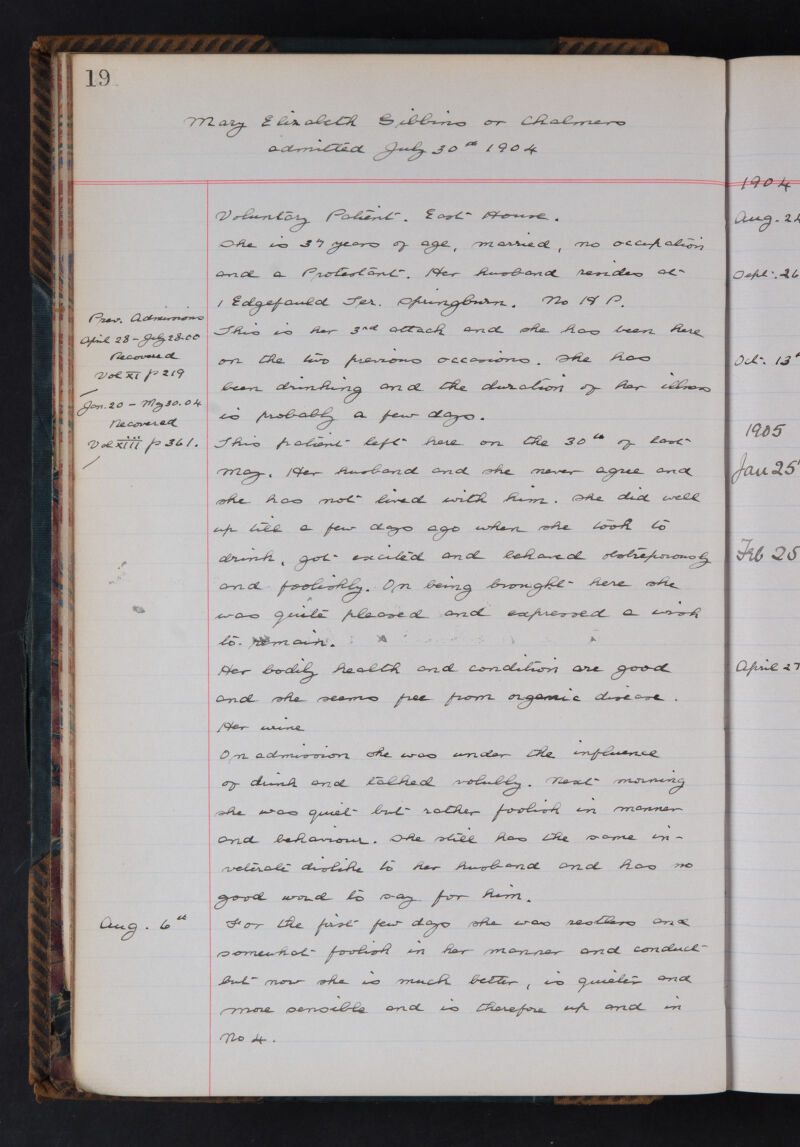 19
Mary Elizabeth Gibbins or Chalmers
admitted July 30th 1904
Voluntary Patient. East House.
She is 37 years of age, married, no occupation
and a Protestant. Her husband resides at
1 Edgefauld Ter. Springburn. No H P.
Prev. Admissions
April 28 – July 28.00
Recovered
Vol XI p 219
Jan. 20 – My 30. 04
Recovered
Vol XIII p 361.
This is her 3rd attack and she has been here
on the two previous occasions. She has
been drinking and the duration of her illness
is probably a few days.
This patient left here on the 30th of last
May. Her husband and she never agree and
she has not lived with him. She did well
up till a few days ago when she took to
drink, got excited and behaved obstreperously
and foolishly. On being brought here she
was quite pleased and expressed a wish
to remain.
Her bodily health and condition are good
and she seems free from organic disease.
Her urine
On admission she was under the influence
of drink and talked volubly. Next morning
she was quiet but rather foolish in manner
and behaviour. She still has the same in-
veterate dislike to her husband and has no
good word to say for him.
Aug. 6th
For the first few days she was restless and
somewhat foolish in her manner and conduct
but now she is much better, is quieter and
more sensible and is therefore up and in
No 4.
1904
Aug. 24
Sept. 26
Oct. 13
1905
Jan 25
Feb 25
April 27